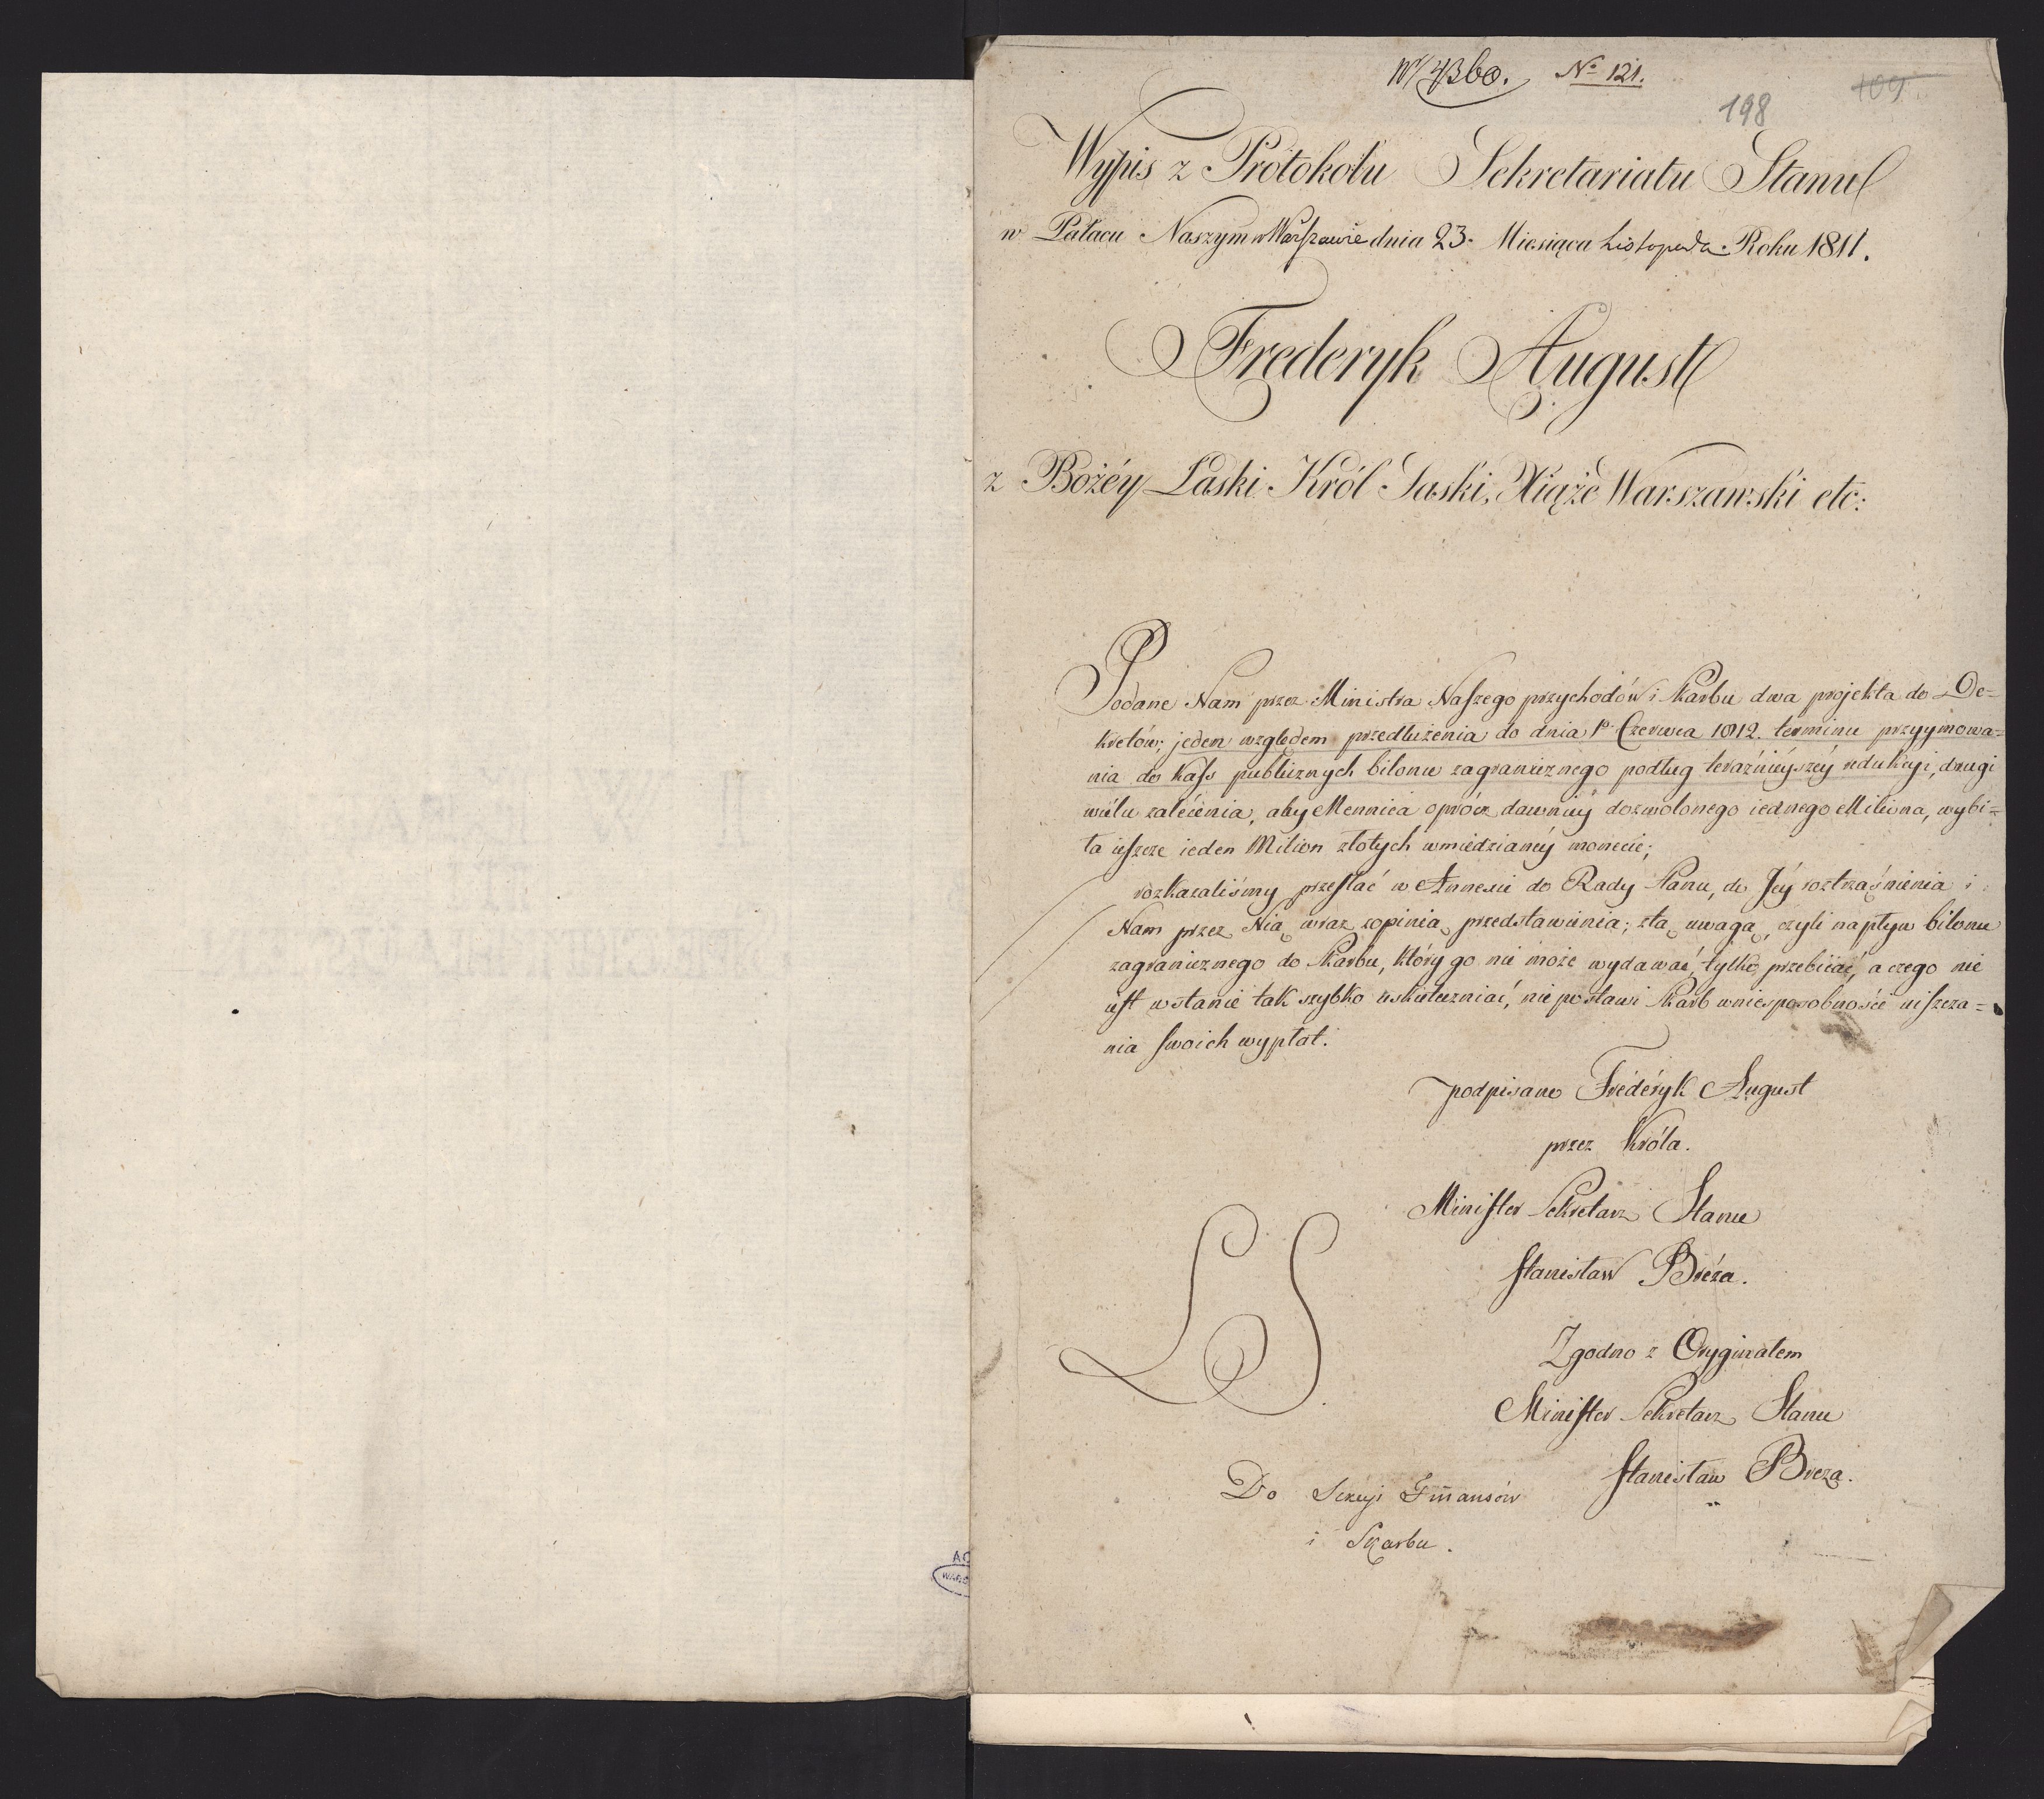 N 4360. No 121.
198 109
Wypis z Protokołu Sekretariatu Stanu
w Pałacu Naszym w Warszawie dnia 23. Miesiąca Listopada. Roku 1811.
Frederyk August
z Bożéy Łaski Król Saski, Xiąże Warszawski etc:
Podane Nam przez Ministra Naszego przychodów i Skarbu dwa projekta do De=
kretów; jeden względem przedłużenia do dnia 1o Czerwca 1812. terminu przyymowa=
nia do Kass publicznych bilonu zagranicznego podług teraźnieyszéy redukcyi, drugi
wcélu zalécenia, aby Mennica oprócz dawniéy dozwolonego iednego Miliona, wybi=
ła ieszcze ieden Milion złotych wmiedzianéy monecie;
rozkazaliśmy przesłać w Annexie do Rady Stanu, do Jéy roztrząśnienia i
Nam przez Nią wraz zopinią przedstawienia; ztą uwagą, czyli napływ bilonu
zagranicznego do Skarbu, który go nie może wydawać, tylko przebiiać, a czego nie
iest wstanie tak szybko uskuteczniać, nie postawi Skarb wniesposobności uiszcza=
nia swoich wypłat.
podpisano Fréderyk August
przez Króla.
Minister Sekretarz Stanu
Stanisław Bréza.
LS
Zgodno z Oryginałem
Minister Sekretarz Stanu
Stanisław Breza.
Do Sekcyi Finansów
i Skarbu.